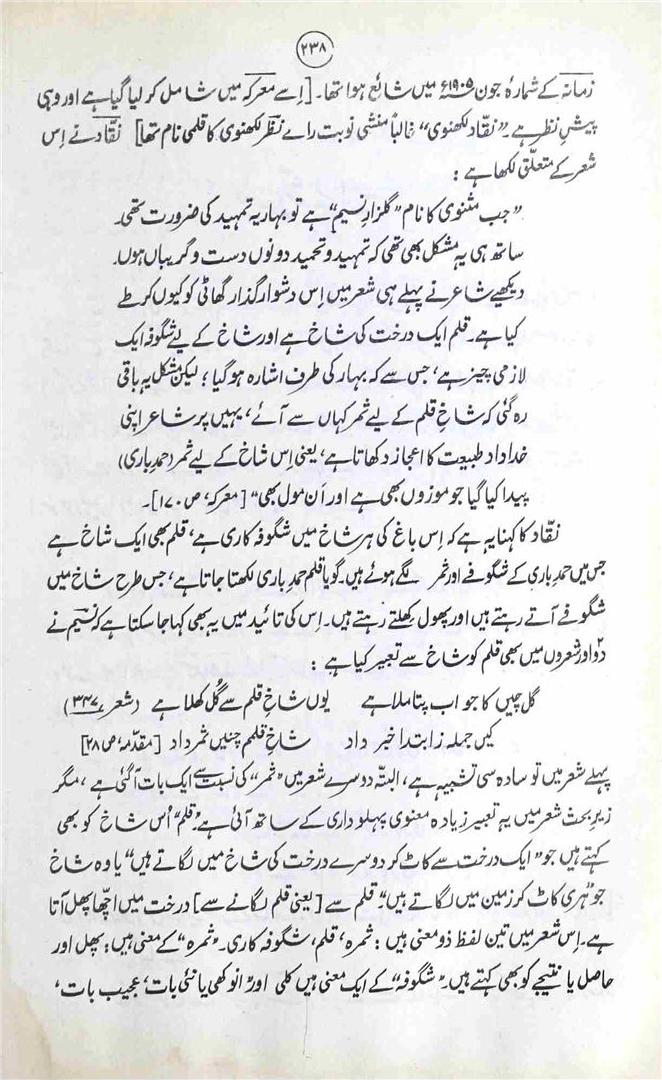 ۲۳۸
زمانہ کے شمارۂ جون ۱۹۰۵ء میں شائع ہوا تھا۔ [اِسے معرکہ میں شامل کر لیا گیا ہے اور وہی
پیشِ نظر ہے۔ ”نقّاد لکھنوی“ غالباً منشی نوبت راے نظر لکھنوی کا قلمی نام تھا] نقّاد نے اِس
شعر کے متعلّق لکھا ہے :
”جب مثنوی کا نام ”گلزارِ نسیم“ ہے تو بہاریہ تمہید کی ضرورت تھی۔
ساتھ ہی یہ مشکل بھی تھی کہ تمہید و تحمید دونوں دست و گریباں ہوں۔
دیکھیے شاعر نے پہلے ہی شعر میں اِس دشوار گذار گھاٹی کو کیوں کر طے
کیا ہے۔ قلم ایک درخت کی شاخ ہے اور شاخ کے لیے شگوفہ ایک
لازمی چیز ہے، جس سے کہ بہار کی طرف اشارہ ہو گیا ؛ لیکن مشکل یہ باقی
رہ گئی کہ شاخِ قلم کے لیے ثمر کہاں سے آئے، یہیں پر شاعر اپنی
خداداد طبیعت کا اعجاز دکھاتا ہے، یعنی اِس شاخ کے لیے ثمر (حمدِ باری)
پیدا کیا گیا جو موزوں بھی ہے اور اَن مول بھی“ [معرکہ، ص ۱۷۰]۔
نقّاد کا کہنا یہ ہے کہ اِس باغ کی ہر شاخ میں شگوفہ کاری ہے، قلم بھی ایک شاخ ہے
جس میں حمدِ باری کے شگوفے اور ثمر لگے ہوئے ہیں۔ گویا قلم حمدِ باری لکھتا جاتا ہے، جس طرح شاخ میں
شگوفے آتے رہتے ہیں اور پھول کھلتے رہتے ہیں۔ اِس کی تائید میں یہ بھی کہا جا سکتا ہے کہ نسیم نے
دو اور شعروں میں بھی قلم کو شاخ سے تعبیر کیا ہے :
گل چیں کا جو اب پتا ملا ہے یوں شاخِ قلم سے گُل کھلا ہے (شعر ۳۴۷)
کیں جملہ زابتدا خبر داد شاخِ قلمم چنیں ثمر داد [مقدّمہ، ص ۲۸]
پہلے شعر میں تو سادہ سی تشبیہ ہے، البتّہ دوسرے شعر میں ”ثمر“ کی نسبت سے ایک بات آ گئی ہے ، مگر
زیرِ بحث شعر میں یہ تعبیر زیادہ معنوی پہلو داری کے ساتھ آئی ہے۔ ”قلم“ اُس شاخ کو بھی
کہتے ہیں جو ”ایک درخت سے کاٹ کر دوسرے درخت کی شاخ میں لگاتے ہیں“ یا وہ شاخ
جو ”تری کاٹ کر زمین میں لگاتے ہیں“ قلم سے [یعنی قلم لگانے سے] درخت میں اچّھا پھل آتا
ہے۔ اِس شعر میں تین لفظ ذو معنی ہیں : ثمرہ، قلم، شگوفہ کاری۔ ”ثمرہ“ کے معنی ہیں: پھل اور
حاصل یا نتیجے کو بھی کہتے ہیں۔ ”شگوفہ“ کے ایک معنی ہیں کلی اور ”انوکھی یا نئی بات، عجیب بات،